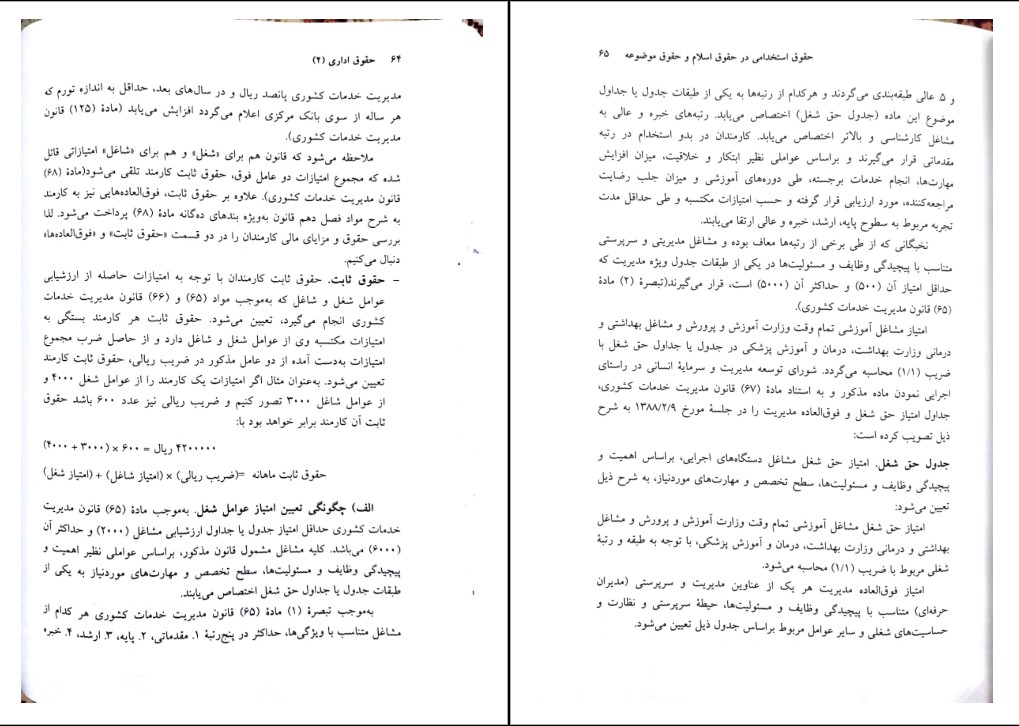 ۶۴ حقوق اداری (۲)
مدیریت خدمات کشوری پانصد ریال و در سال‌های بعد، حداقل به اندازه تورم که
هر ساله از سوی بانک مرکزی اعلام می‌گردد افزایش می‌یابد (مادۀ (۱۲۵) قانون
مدیریت خدمات کشوری).
ملاحظه می‌شود که قانون هم برای «شغل» و هم برای «شاغل» امتیازاتی قائل
شده که مجموع امتیازات دو عامل فوق، حقوق ثابت کارمند تلقی می‌شود(مادۀ (۶۸)
قانون مدیریت خدمات کشوری). علاوه بر حقوق ثابت، فوق‌العاده‌هایی نیز به کارمند
به شرح مواد فصل دهم قانون به‌ویژه بندهای ده‌گانه مادۀ (۶۸) پرداخت می‌شود. لذا
بررسی حقوق و مزایای مالی کارمندان را در دو قسمت «حقوق ثابت» و «فوق‌العاده‌ها»
دنبال می‌کنیم.
– حقوق ثابت. حقوق ثابت کارمندان با توجه به امتیازات حاصله از ارزشیابی
عوامل شغل و شاغل که به‌موجب مواد (۶۵) و (۶۶) قانون مدیریت خدمات
کشوری انجام می‌گیرد، تعیین می‌شود. حقوق ثابت هر کارمند بستگی به
امتیازات مکتسبه وی از عوامل شغل و شاغل دارد و از حاصل ضرب مجموع
امتیازات به‌دست آمده از دو عامل مذکور در ضریب ریالی، حقوق ثابت کارمند
تعیین می‌شود. به‌عنوان مثال اگر امتیازات یک کارمند را از عوامل شغل ۴۰۰۰ و
از عوامل شاغل ۳۰۰۰ تصور کنیم و ضریب ریالی نیز عدد ۶۰۰ باشد حقوق
ثابت آن کارمند برابر خواهد بود با:
۴۲۰۰۰۰۰ ریال = ۶۰۰ × (۳۰۰۰ + ۴۰۰۰)
حقوق ثابت ماهانه =(ضریب ریالی) × (امتیاز شاغل) + (امتیاز شغل)
الف) چگونگی تعیین امتیاز عوامل شغل. به‌موجب مادۀ (۶۵) قانون مدیریت
خدمات کشوری حداقل امتیاز جدول یا جداول ارزشیابی مشاغل (۲۰۰۰) و حداکثر آن
(۶۰۰۰) می‌باشد. کلیه مشاغل مشمول قانون مذکور، براساس عواملی نظیر اهمیت و
پیچیدگی وظایف و مسئولیت‌ها، سطح تخصص و مهارت‌های موردنیاز به یکی از
طبقات جدول یا جداول حق شغل اختصاص می‌یابند.
به‌موجب تبصرۀ (۱) مادۀ (۶۵) قانون مدیریت خدمات کشوری هر کدام از
مشاغل متناسب با ویژگی‌ها، حداکثر در پنج‌رتبۀ ۱. مقدماتی، ۲. پایه، ۳. ارشد، ۴. خبره
حقوق استخدامی در حقوق اسلام و حقوق موضوعه ۶۵
و ۵. عالی طبقه‌بندی می‌گردند و هرکدام از رتبه‌ها به یکی از طبقات جدول یا جداول
موضوع این ماده (جدول حق شغل) اختصاص می‌یابد. رتبه‌های خبره و عالی به
مشاغل کارشناسی و بالاتر اختصاص می‌یابد. کارمندان در بدو استخدام در رتبه
مقدماتی قرار می‌گیرند و براساس عواملی نظیر ابتکار و خلاقیت، میزان افزایش
مهارت‌ها، انجام خدمات برجسته، طی دوره‌های آموزشی و میزان جلب رضایت
مراجعه‌کننده، مورد ارزیابی قرار گرفته و حسب امتیازات مکتسبه و طی حداقل مدت
تجربه مربوط به سطوح پایه، ارشد، خبره و عالی ارتقا می‌یابند.
نخبگانی که از طی برخی از رتبه‌ها معاف بوده و مشاغل مدیریتی و سرپرستی
متناسب با پیچیدگی وظایف و مسئولیت‌ها در یکی از طبقات جدول ویژه مدیریت که
حداقل امتیاز آن (۵۰۰) و حداکثر آن (۵۰۰۰) است، قرار می‌گیرند(تبصرۀ (۲) مادۀ
(۶۵) قانون مدیریت خدمات کشوری).
امتیاز مشاغل آموزشی تمام وقت وزارت آموزش و پرورش و مشاغل بهداشتی و
درمانی وزارت بهداشت، درمان و آموزش پزشکی در جدول یا جداول حق شغل با
ضریب (۱/۱) محاسبه می‌گردد. شورای توسعه مدیریت و سرمایۀ انسانی در راستای
اجرایی نمودن ماده مذکور و به استناد مادۀ (۶۷) قانون مدیریت خدمات کشوری،
جداول امتیاز حق شغل و فوق‌العاده مدیریت را در جلسۀ مورخ ۱۳۸۸/۲/۹ به شرح
ذیل تصویب کرده است:
جدول حق شغل. امتیاز حق شغل مشاغل دستگاه‌های اجرایی، براساس اهمیت و
پیچیدگی وظایف و مسئولیت‌ها، سطح تخصص و مهارت‌های موردنیاز، به شرح ذیل
تعیین می‌شود:
امتیاز حق شغل مشاغل آموزشی تمام وقت وزارت آموزش و پرورش و مشاغل
بهداشتی و درمانی وزارت بهداشت، درمان و آموزش پزشکی، با توجه به طبقه و رتبۀ
شغلی مربوط با ضریب (۱/۱) محاسبه می‌شود.
امتیاز فوق‌العاده مدیریت هر یک از عناوین مدیریت و سرپرستی (مدیران
حرفه‌ای) متناسب با پیچیدگی وظایف و مسئولیت‌ها، حیطۀ سرپرستی و نظارت و
حساسیت‌های شغلی و سایر عوامل مربوط براساس جدول ذیل تعیین می‌شود.